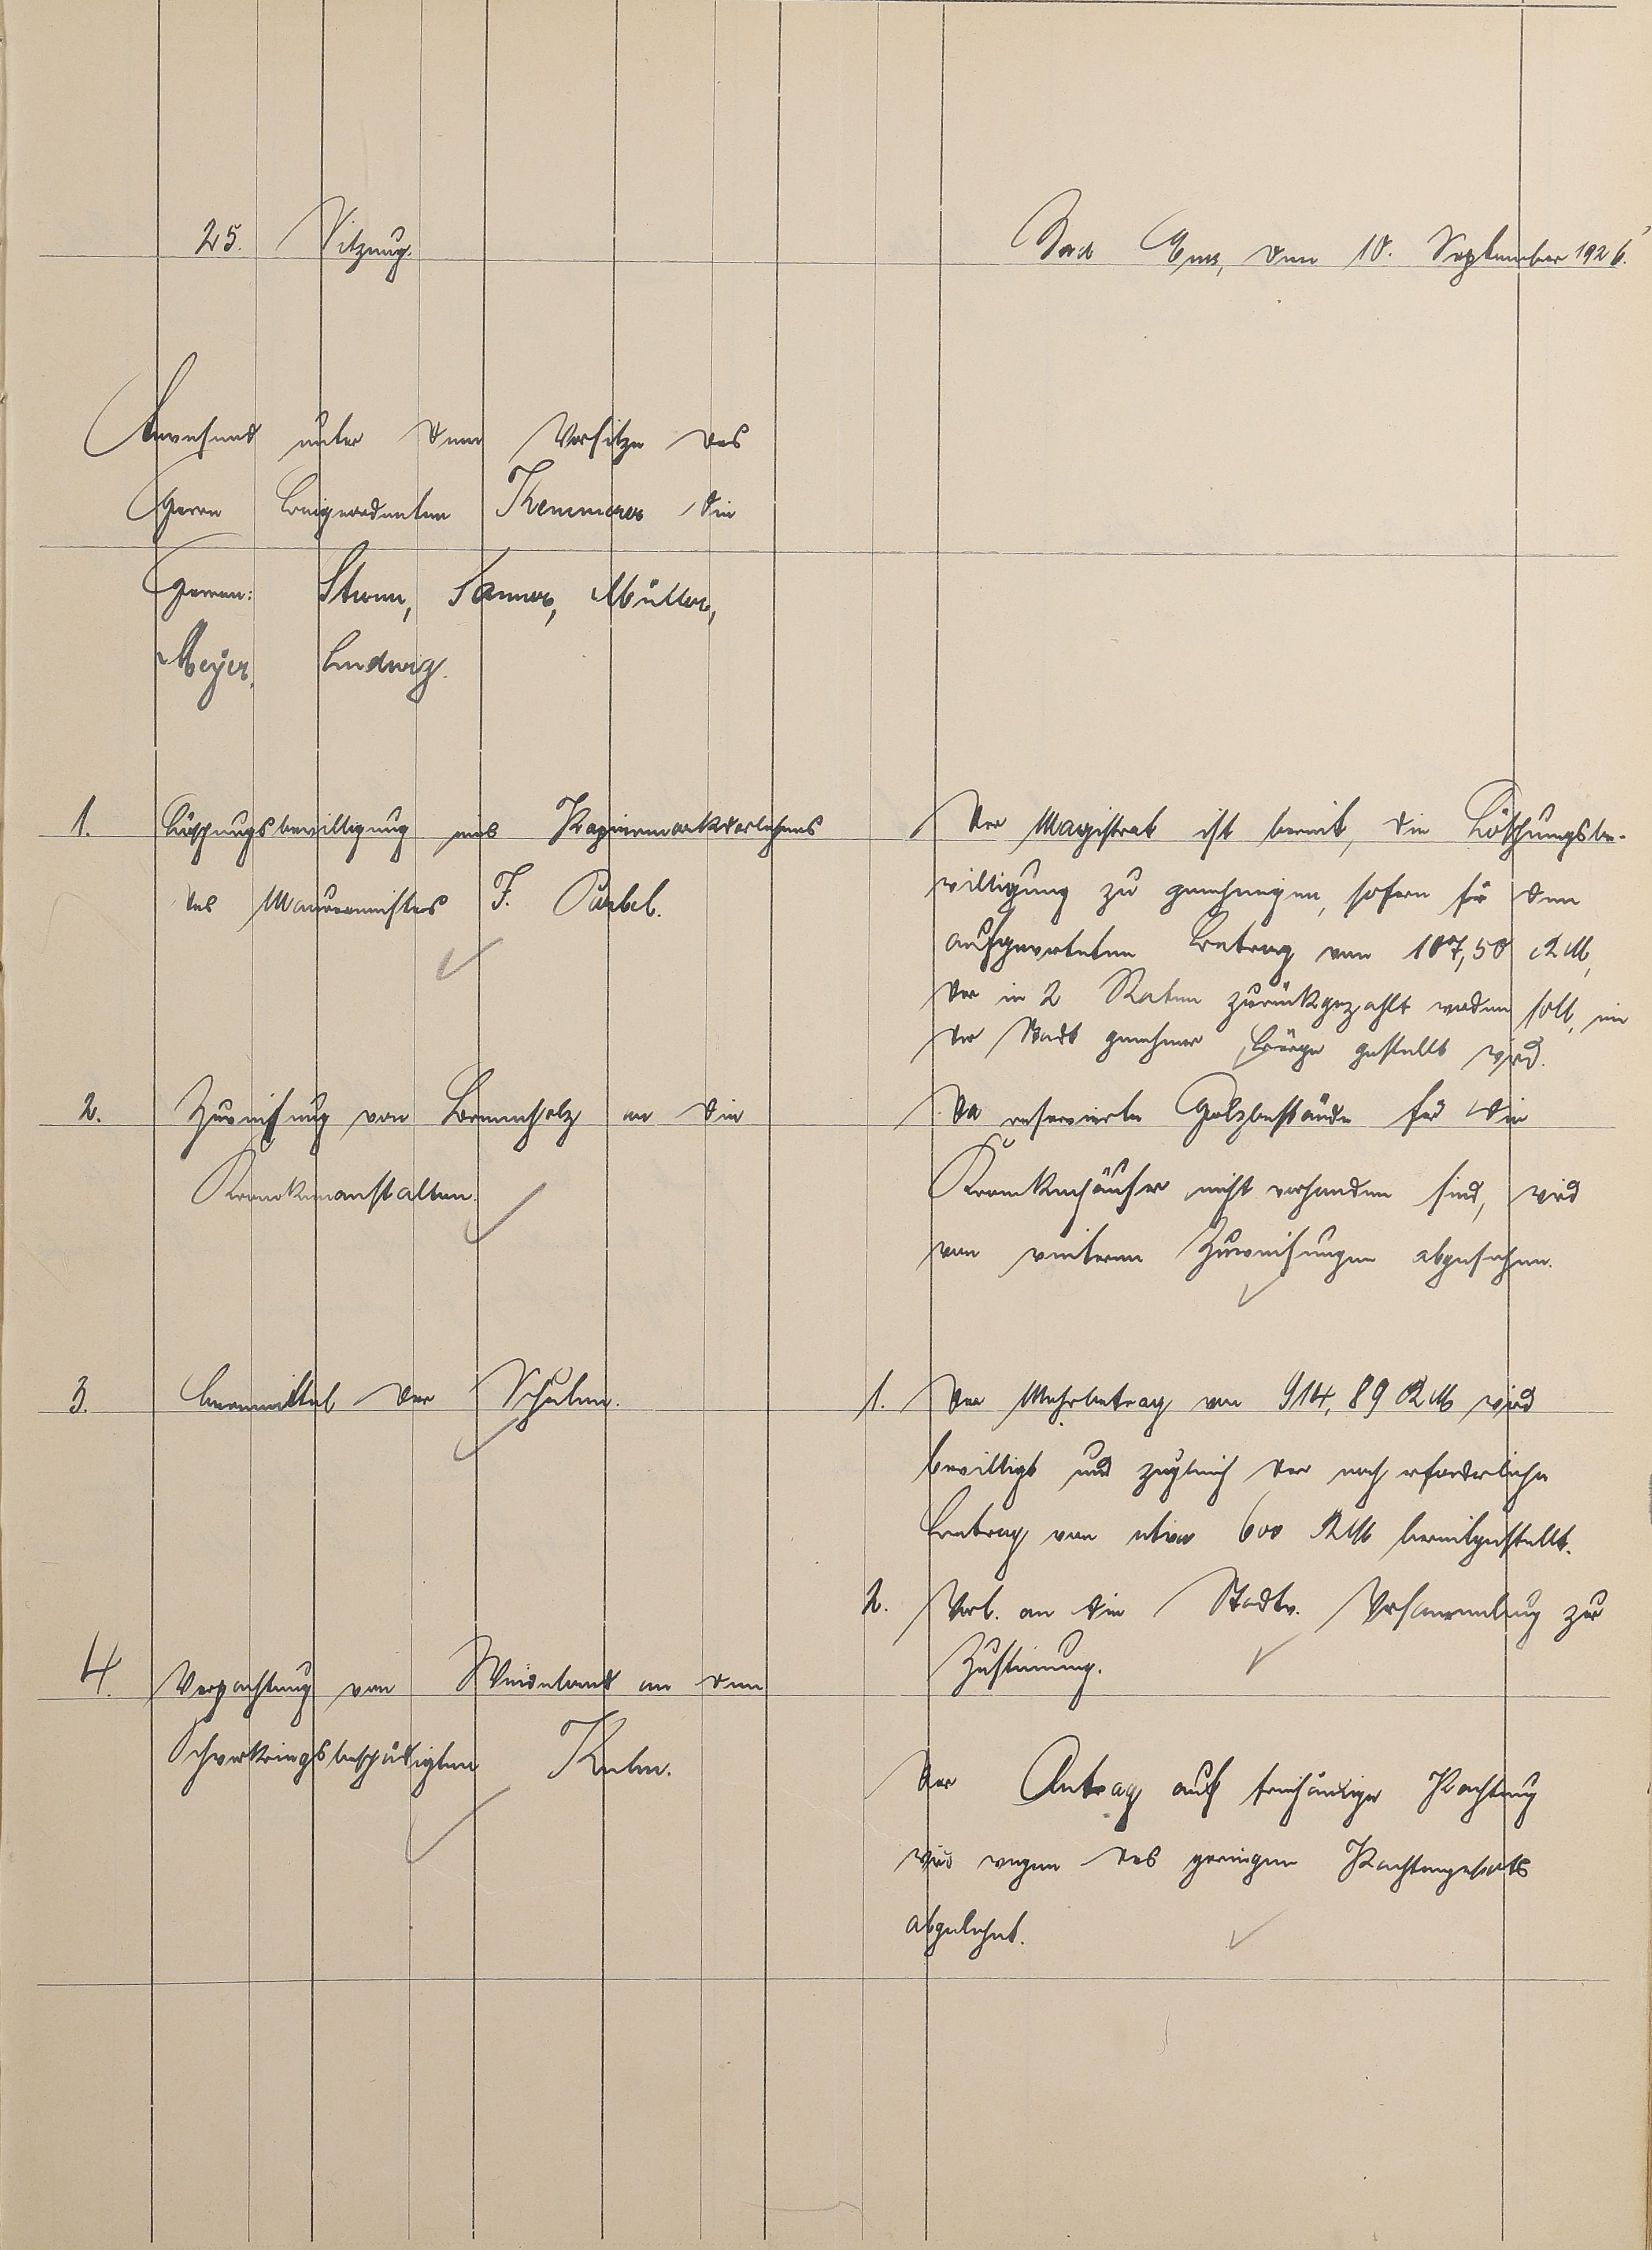 25. Sitzung.
Bad Ems, den 10. September 1926.
Anwesend unter dem Vorsitze des
Herrn Beigeordneten Kemmerer die
Herren: Stemm, Sanner, Müller,
Meyer, Ludwig.
1. Löschungsbewilligung eines Papiermarkdarlehens
des Maurermeisters F. Paebel.
Der Magistrat ist bereit, die Löschungsbe-
willigung zu genehmigen, sofern für den
aufgewerteten Betrag von 107,50 RM,
der in 2 Raten zurückgezahlt werden soll, ein
der Stadt genehmer Bürge gestellt wird.
2. Zuweisung von Brennholz an die
Krankenanstalten.
Da reservierte Holzbestände für die
Krankenhäuser nicht vorhanden sind, wird
von weiteren Zuweisungen abgesehen.
3. Lernmittel der Schulen.
1. Der Mehrbetrag von 914,89 RM wird
bewilligt und zugleich der noch erforderliche
Betrag von etwa 600 RM bereitgestellt.
2. Vorl. an die Stadtv. Versammlung zur
Zustimmung.
4. Verpachtung von Weideland an den
Schwerkriegsbeschädigten Kulm.
Der Antrag auf freihändige Pachtung
wird wegen des geringen Pachtangebots
abgelehnt.